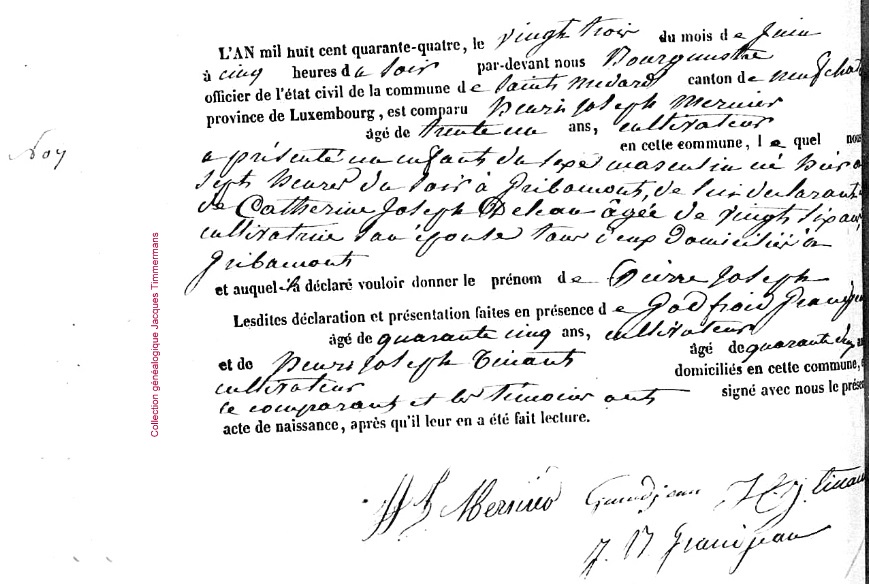 L'AN mil huit cent quarante-quatre, le vingt trois du mois de Juin
à cinq heures du soir par-devant nous Bourgmestre
officier de l'état civil de la commune de Saint Médard canton de neufchat
province de Luxembourg, est comparu Henri Joseph Mernier
âgé de trente un ans, cultivateur
en cette commune, l e quel nous
a présenté un enfant du sexe masculin né hier a
sept heures du soir à Gribomont, de lui déclarant
de Catherine Joseph âgée de vingt six ans
cultivatrice son épouse tous deux domiciliés à
Gribomont
et auquel il a déclaré vouloir donner le prénom de Pierre Joseph
Lesdites déclaration et présentation faites en présence de Godfroid
âgé de quarante cinq ans, cultivateur
et de Henri Joseph Tinant âgé de quarante
cultivateur domiciliés en cette commune,
le comparant et les témoins ont signé avec nous le prése
acte de naissance, après qu'il leur en a été fait lecture.
Mernier Grandjean Tinant
Grandjean
Collection généalogique Jacques Timmermans